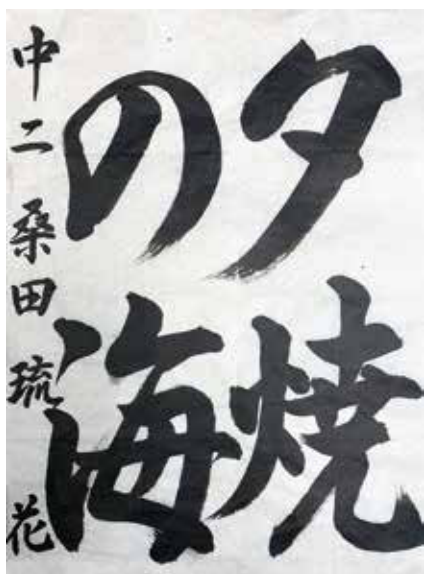 夕焼
の海
中二 桑田琉花